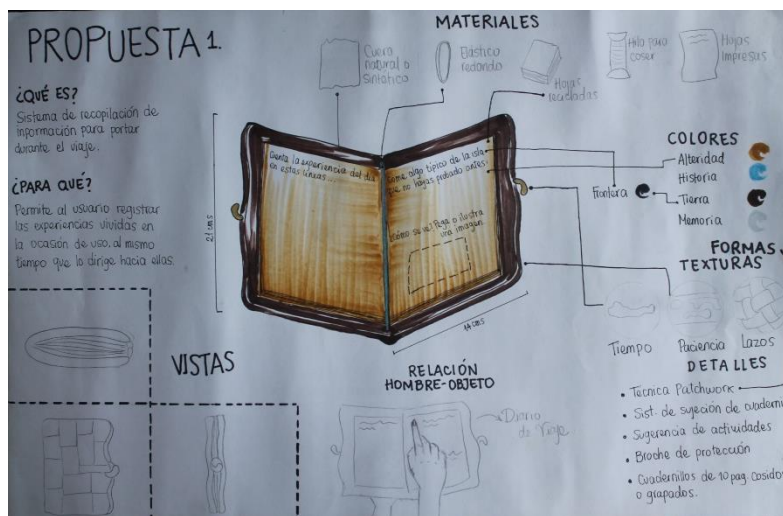 PROPUESTA 1.
¿QUÉ ES?
Sistema de recopilación de
información para portar
durante el viaje.
¿PARA QUÉ?
Permite al usuario registrar
las experiencias vividas en
la ocasión de uso, al mismo
tiempo que lo dirige hacia ellas.
MATERIALES
Cuero
natural o
sintético
Elástico
redondo
Hojas
recicladas
Hilo para
coser
Hojas
impresas
21 cms
Cuenta la experiencia del día
en estas líneas...
Come algo típico de la isla
que no hayas probado antes.
¿Cómo se ve? Pega o ilustra
una imagen
14 cms
COLORES
Alteridad
Historia
Frontera
Tierra
Memoria
FORMAS
TEXTURAS
Tiempo
Paciencia
Lazos
DETALLES
• Técnica Patchwork
• Sist. de sujeción de cuaderni
• Sugerencia de actividades
• Broche de protección
• Cuadernillos de 10 pag. cosidos
o grapados.
VISTAS
RELACIÓN
HOMBRE-OBJETO
Diario
de Viaje